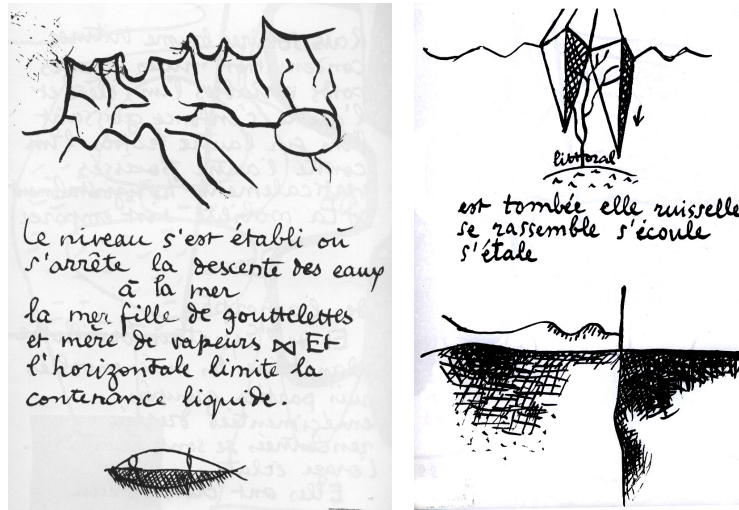 Le niveau s'est établi où
s'arrête la descente des eaux
à la mer
la mer fille de gouttelettes
et mère de vapeurs ⋈ Et
l'horizontale limite la
contenance liquide.
littoral
est tombée elle ruisselle
se rassemble s'écoule
s'étale